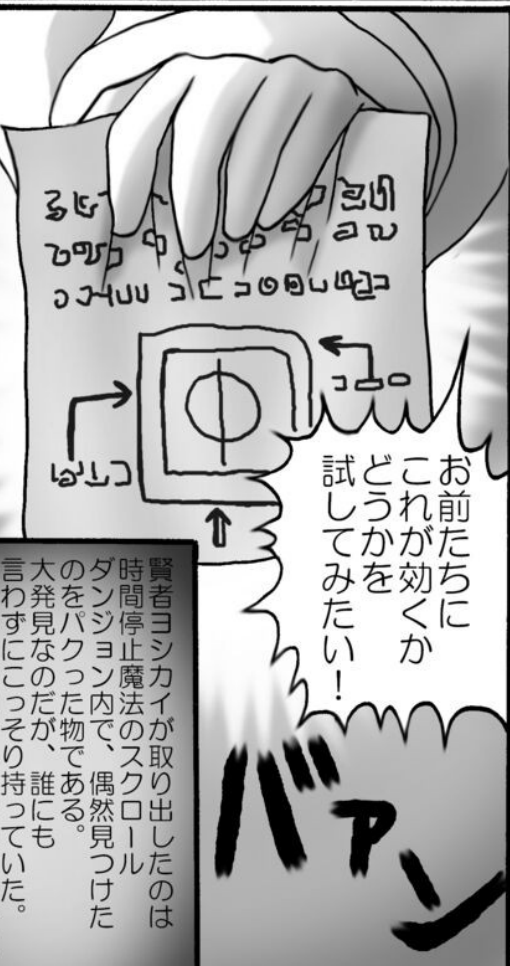 お前たちに
これが効くか
どうかを
試してみたい！
バァン
賢者ヨシカイが取り出したのは
時間停止魔法のスクロール
ダンジョン内で、偶然見つけた
のをパクった物である。
大発見なのだが、誰にも
言わずにこっそり持っていた。